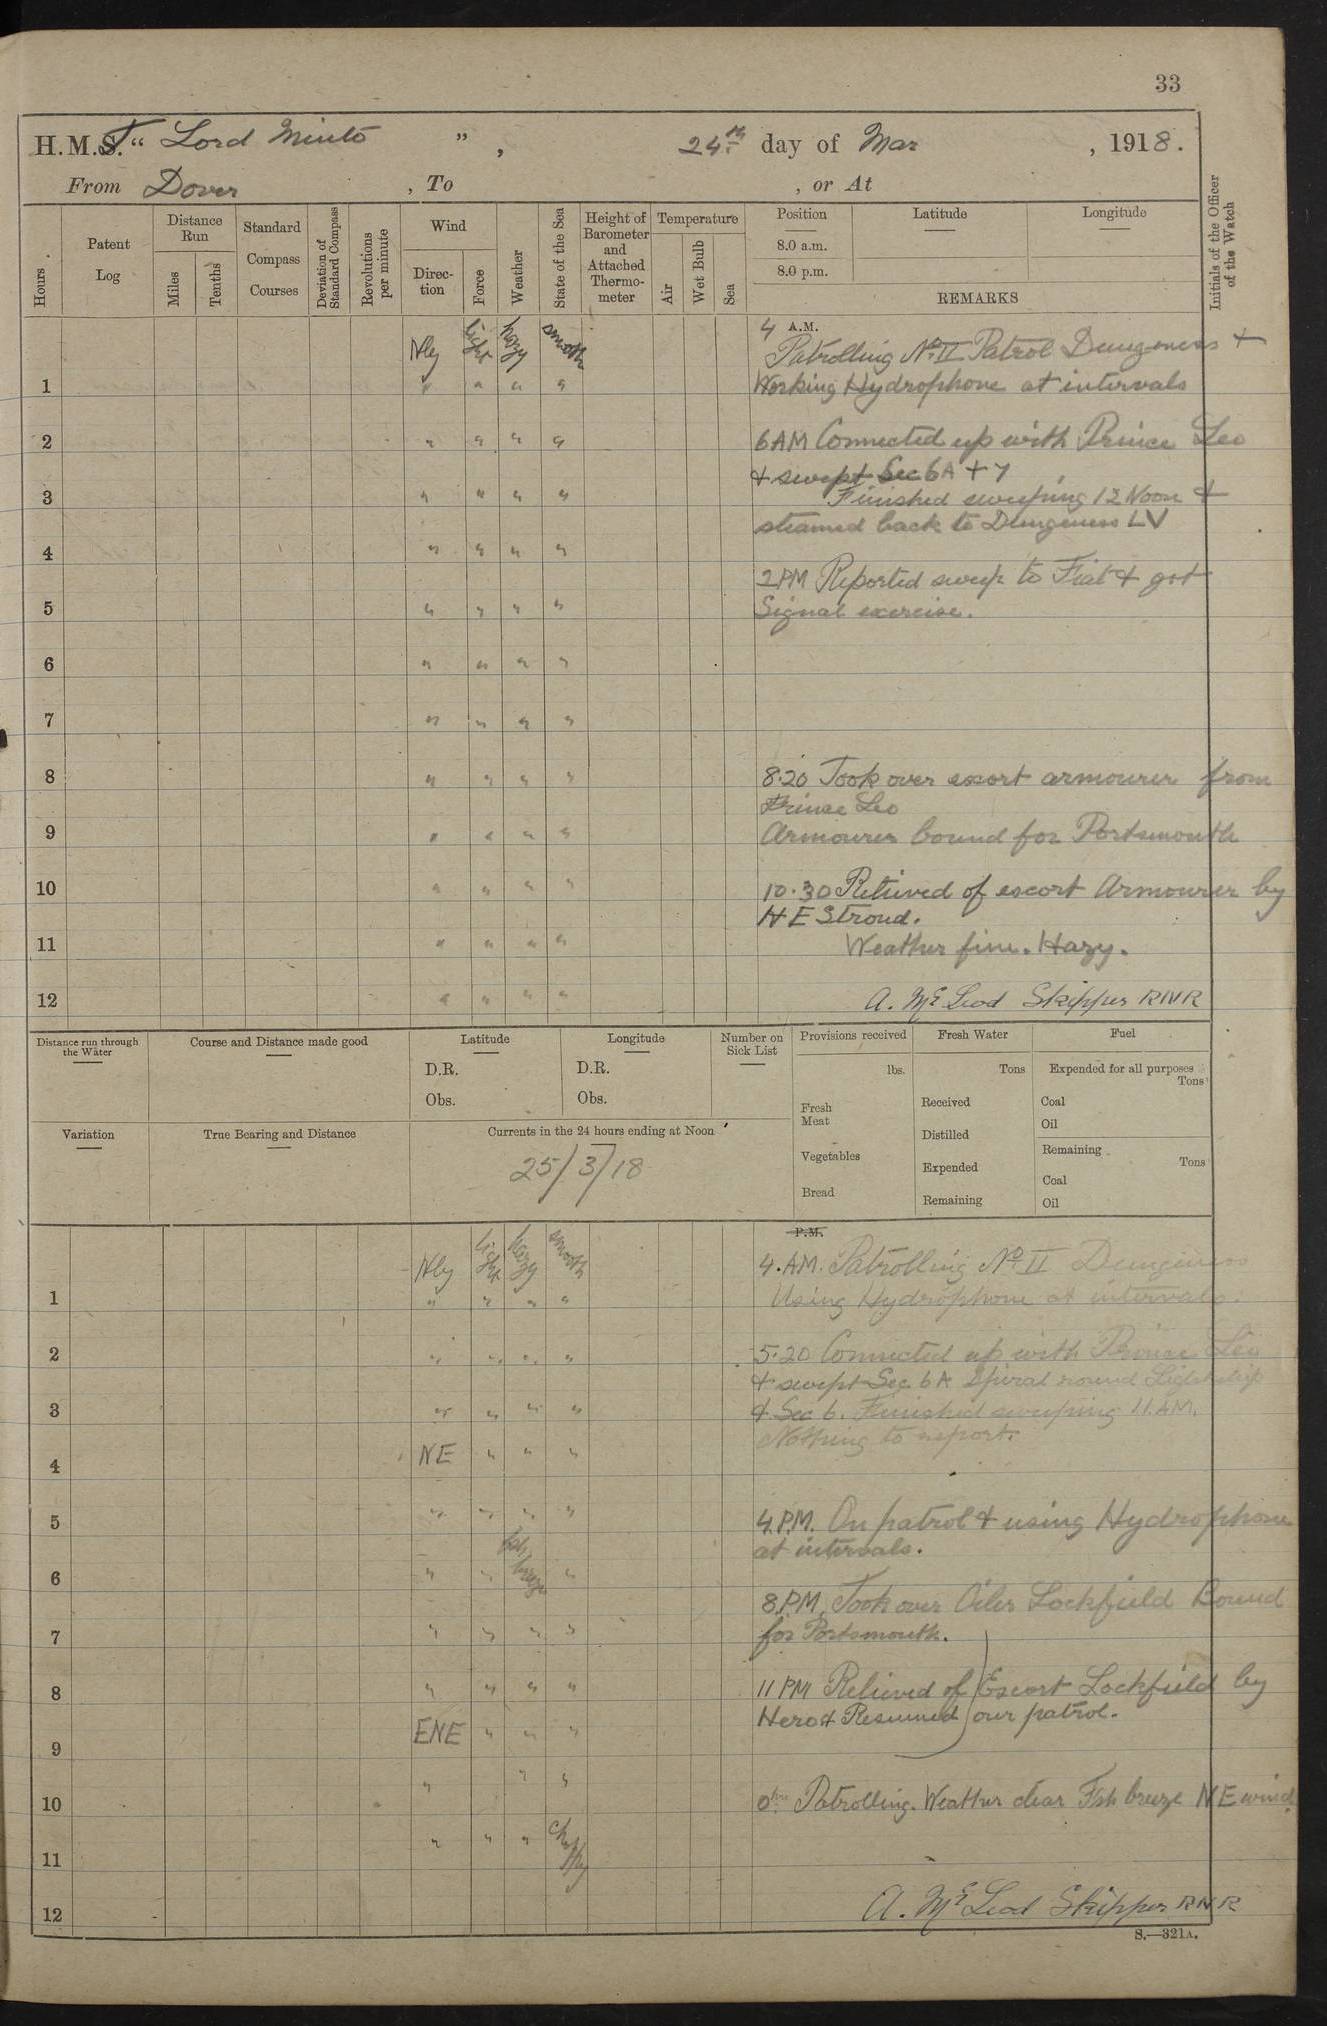 33
H.M.S.T. " Lord Minto " , 24th day of Mar , 1918.
From Dover , To , or At
Hours
Patent Log
Distance Run
Miles
Tenths
Standard Compass Courses
Deviation of Standard Compass
Revolutions per minute
Wind
Direction
Force
Weather
State of the Sea
Height of Barometer and Attached Thermometer
Temperature
Air
Wet Bulb
Sea
Position
8.0 a.m.
8.0 p.m.
Latitude
Longitude
REMARKS
Initials of the Officer of the Watch
4 A.M.
Nly light hazy smooth Patrolling No II Patrol Dungeness +
1 " " " " Working Hydrophone at intervals
2 " " " " 6AM Connected up with Prince Leo
& swept Sec 6A + 7
3 " " " " Finished sweeping 12 Noon &
steamed back to Dungeness LV
4 " " " "
2PM Reported sweep to Fiat & got
5 " " " " Signal exercise.
6 " " " "
7 " " " "
8 " " " " 8.20 Took over escort armourer from
Prince Leo
9 " " " " Armourer bound for Portsmouth
10 " " " " 10.30 Relieved of escort Armourer by
N E Stroud.
11 " " " " Weather fine. Hazy.
12 " " " " A. McLeod Skipper RNR
Distance run through the Water
Course and Distance made good
Latitude
D.R.
Obs.
Longitude
D.R.
Obs.
Number on Sick List
Provisions received
lbs.
Fresh Meat
Vegetables
Bread
Fresh Water
Tons
Received
Distilled
Expended
Remaining
Fuel
Expended for all purposes
Tons
Coal
Oil
Remaining
Tons
Coal
Oil
Variation
True Bearing and Distance
Currents in the 24 hours ending at Noon
25/3/18
P.M.
Nly light hazy smooth 4.AM. Patrolling No II Dungeness
1 " " " " Using Hydrophone at intervals.
2 " " " " 5.20 Connected up with Prince Leo
& swept Sec 6A Spiral round Lightship
3 " " " " & Sec 6. Finished sweeping 11.AM.
Nothing to report.
4 NE " " "
5 " " " " 4.P.M. On patrol & using Hydrophone
at intervals.
Fsh breeze
6 " " "
8.P.M. Took over Oiler Lockfield Bound
7 " " " " for Portsmouth.
8 " " " " 11 PM Relieved of Escort Lockfield by
ENE " " " Hero & Resumed our patrol.
9
10 " " " Patrolling. Weather clear Fsh breeze NE wind.
11 " " " Choppy
12 A. McLeod Skipper RNR
S.—321A.